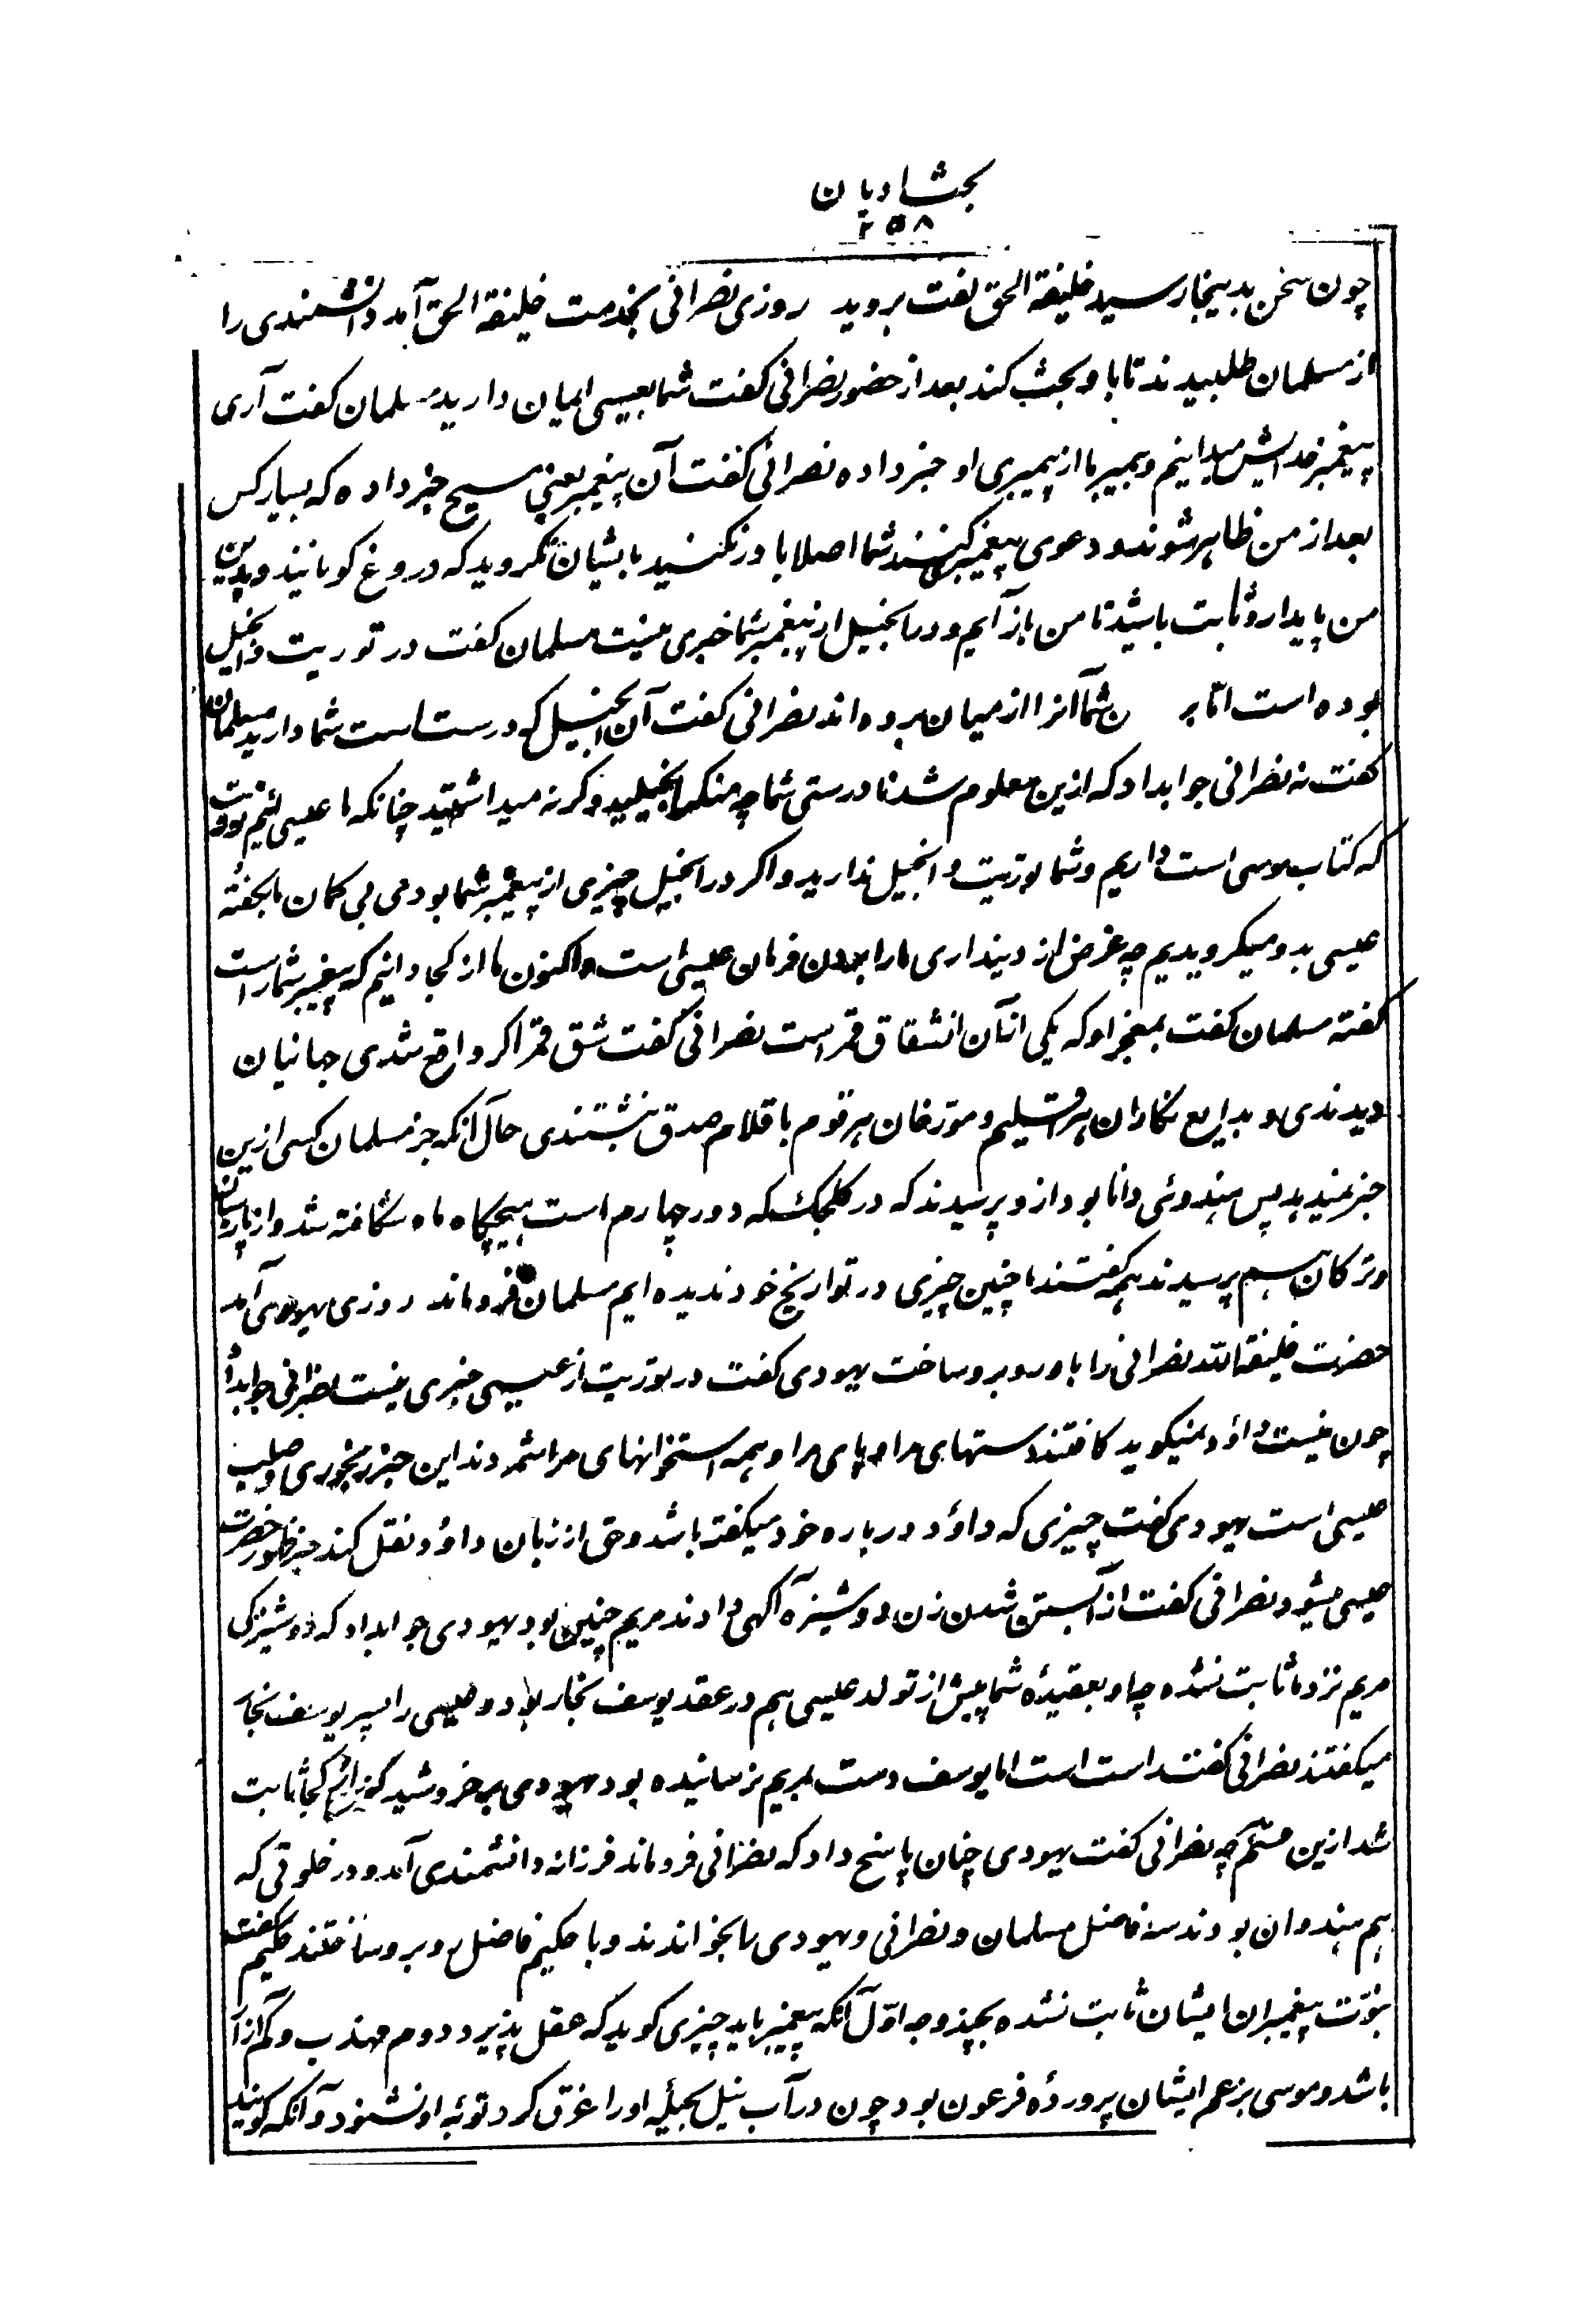 بحث ادیان
۲۵۸
چون سخن بدینجا رسید خلیفة الحق گفت بروید روزی نصرانی بخدمت خلیفة الحق آمد دانشمندی را
از مسلمان طلبیدند تا با او بحث کند بعد از حضور نصرانی گفت شما بعیسی ایمان دارید مسلمان گفت آری
پیغمبر خدایش میدانیم و پیمبر ما از پیمبری او خبر داده نصرانی گفت آن پیغمبر یعنی مسیح خبر داده که بسیار کس
بعد از من ظاهر شوند و دعوی پیغمبری کنند شما اصلا باور نکنید بایشان نگروید که دروغ گویانند و بدین
من پایدار و ثابت باشید تا من باز آیم و در انجیل از پیغمبر شما خبری نیست مسلمان گفت در توریت و انجیل
بوده است اما بر ن شما آنرا از میان برده اند نصرانی گفت آن انجیل که درست است شما دارید مسلمان
گفت نه نصرانی جواب داد که ازین معلوم شد نادرستی شما چه منکر انجیلید و گرنه میداشتید چنانکه ما عیسی ئیم توریت
که کتاب موسی است داریم و شما توریت و انجیل ندارید و اگر در انجیل چیزی از پیغمبر شما بودمی بی گمان ما بگفته
عیسی بدو میگرویدیم چه غرض از دینداری ما را بردن فرمان عیسی است و اکنون ما از کجا دانیم که پیغمبر شما راست
گفته مسلمان گفت بمعجز او که یکی از آن انشقاق قمر است نصرانی گفت شق قمر اگر واقع شدی جهانیان
دیدندی و بدایع نگاران هر اقلیم و مورخان هر قوم با قلام صدق بنشتندی حال آنکه جز مسلمان کسی ازین
خبر نمیدهد پس هندوئی دانا بود ازو پرسیدند که در کلجگ که دور چهارم است هیچگاه ماه شگافته شد و از پارسیان
و ترکان هم پرسیدند همه گفتند ما چنین چیزی در تواریخ خود ندیده ایم مسلمان فرو ماند روزی یهودی آمد
حضرت خلیفة الله نصرانی را با او روبرو ساخت یهودی گفت در توریت از عیسی خبری نیست نصرانی جواب داد
چون نیست داؤد نمیگوید کافتند دستهای مرا و پای مرا و همه استخوانهای مرا شمردند این خبر رنجوری و صلیب
عیسی است یهودی گفت چیزی که داؤد درباره خود میگفته باشد و حق از زبان داؤد نقل کند خبر ظهور حضرت
عیسی میشود نصرانی گفت از آبستن شدن زن دوشیزه آگهی دادند مریم چنین بود یهودی جواب داد که دوشیزگی
مریم نزد ما ثابت نشده چه او بعقیدهٔ شما پیش از تولد عیسی هم در عقد یوسف نجار بود و عیسی را پسر یوسف نجار
میگفتند نصرانی گفت راست است اما یوسف دست بمریم نرسانیده بود یهودی بر خروشید که این از کجا ثابت
شد ازین قسم چه نصرانی گفت یهودی چنان پاسخ داد که نصرانی فرو ماند فرزانه دانشمندی آمد و در خلوتی که
هم هندوان بودند سه فاضل مسلمان و نصرانی و یهودی را بخواندند و با حکیم فاضل روبرو ساختند حکیم گفت
نبوت پیغمبران ایشان ثابت نشده بچند وجه اول آنکه پیغمبر باید چیزی گوید که عقل پذیرد دوم مهذب و کم آزار
باشد و موسی بزعم ایشان پروردهٔ فرعون بود چون در آب نیل بحیله او را غرق کرد توبه او نشنود و آنکه گویند